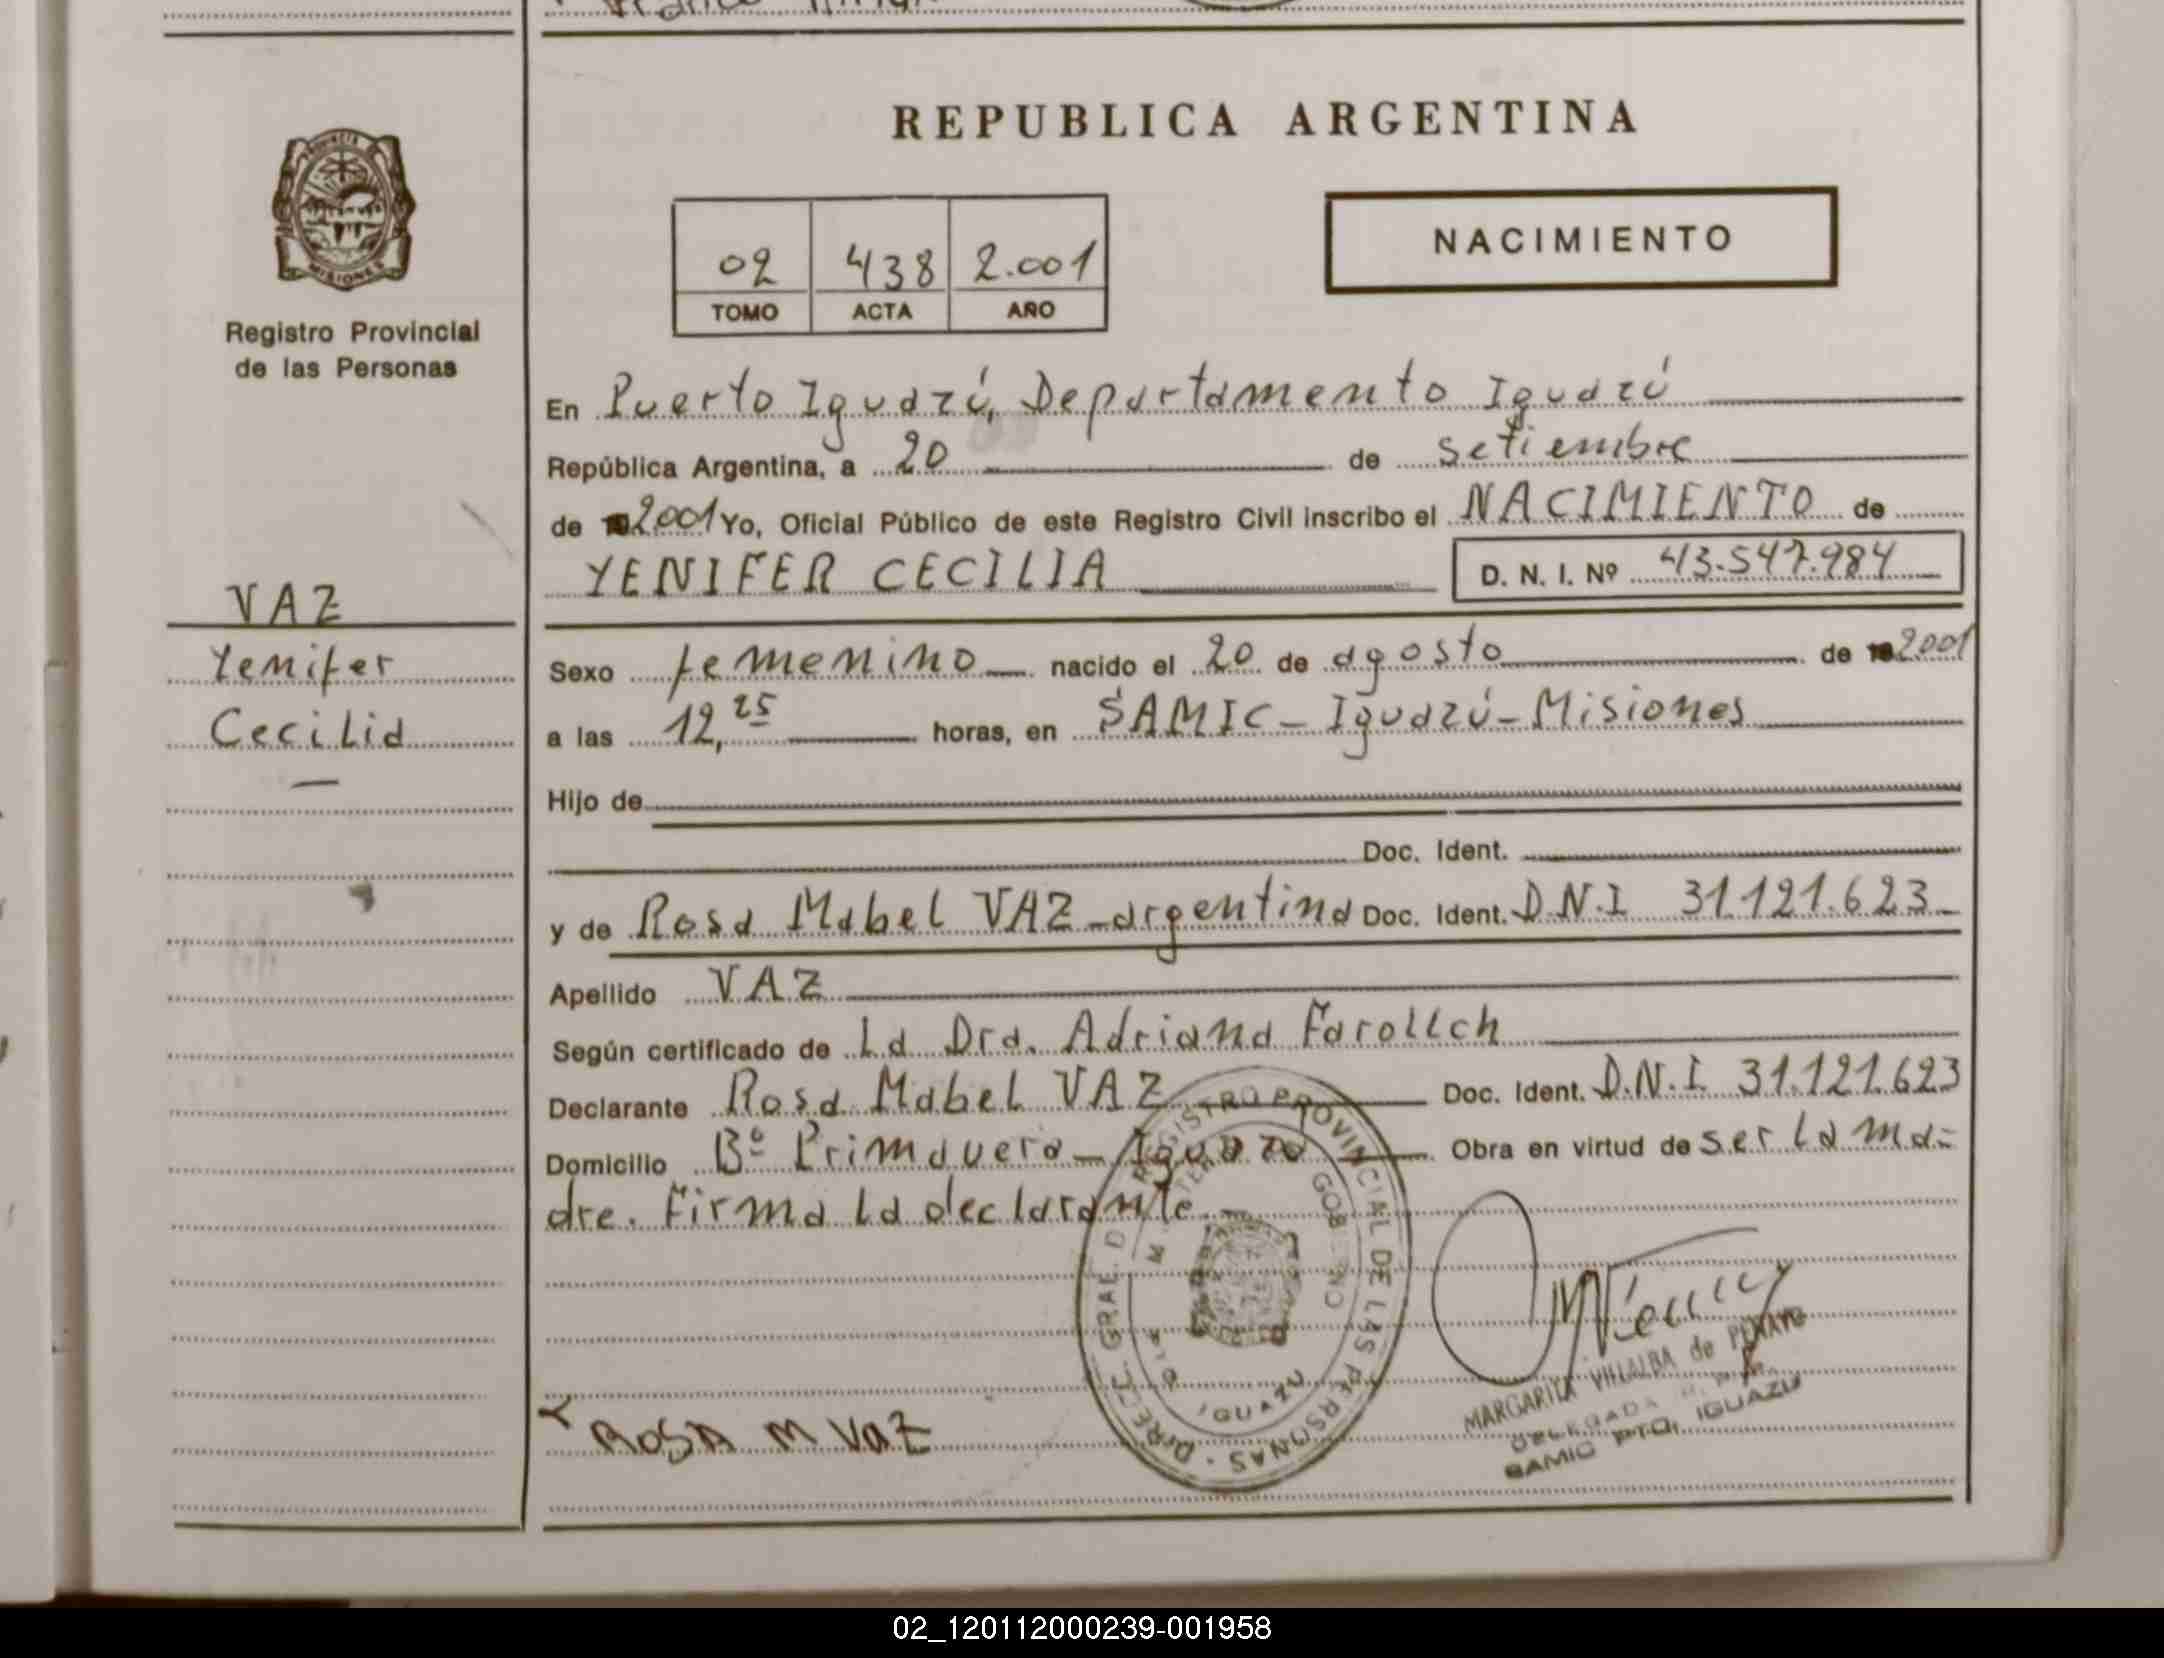 REPUBLICA ARGENTINA
PROVINCIA DE
MISIONES
Registro Provincial
de las Personas
VAZ
Yenifer
Cecilia
02 438 2.001
TOMO ACTA AÑO
NACIMIENTO
En Puerto Iguazú, Departamento Iguazú
República Argentina, a 20 de setiembre
de 2001 Yo, Oficial Público de este Registro Civil inscribo el NACIMIENTO de
YENIFER CECILIA D. N. I. Nº 43.547.984
Sexo femenino nacido el 20 de agosto de 2001
a las 12,25 horas, en SAMIC - Iguazú - Misiones
Hijo de
Doc. Ident.
y de Rosa Mabel VAZ - argentina Doc. Ident. D.N.I 31.121.623
Apellido VAZ
Según certificado de La Dra. Adriana Farollch
Declarante Rosa Mabel VAZ Doc. Ident. D.N.I. 31.121.623
Domicilio Bº Primavera - Iguazú Obra en virtud de ser la ma=
dre. Firma la declarante.
DIREC. GRAL. D REGISTRO PROVINCIAL DE LAS PERSONAS
GOBIERNO
IGUAZU
MARGARITA VILLALBA de
DELEGADA
SAMIC PTO. IGUAZU
ROSA M VAZ
02_120112000239-001958